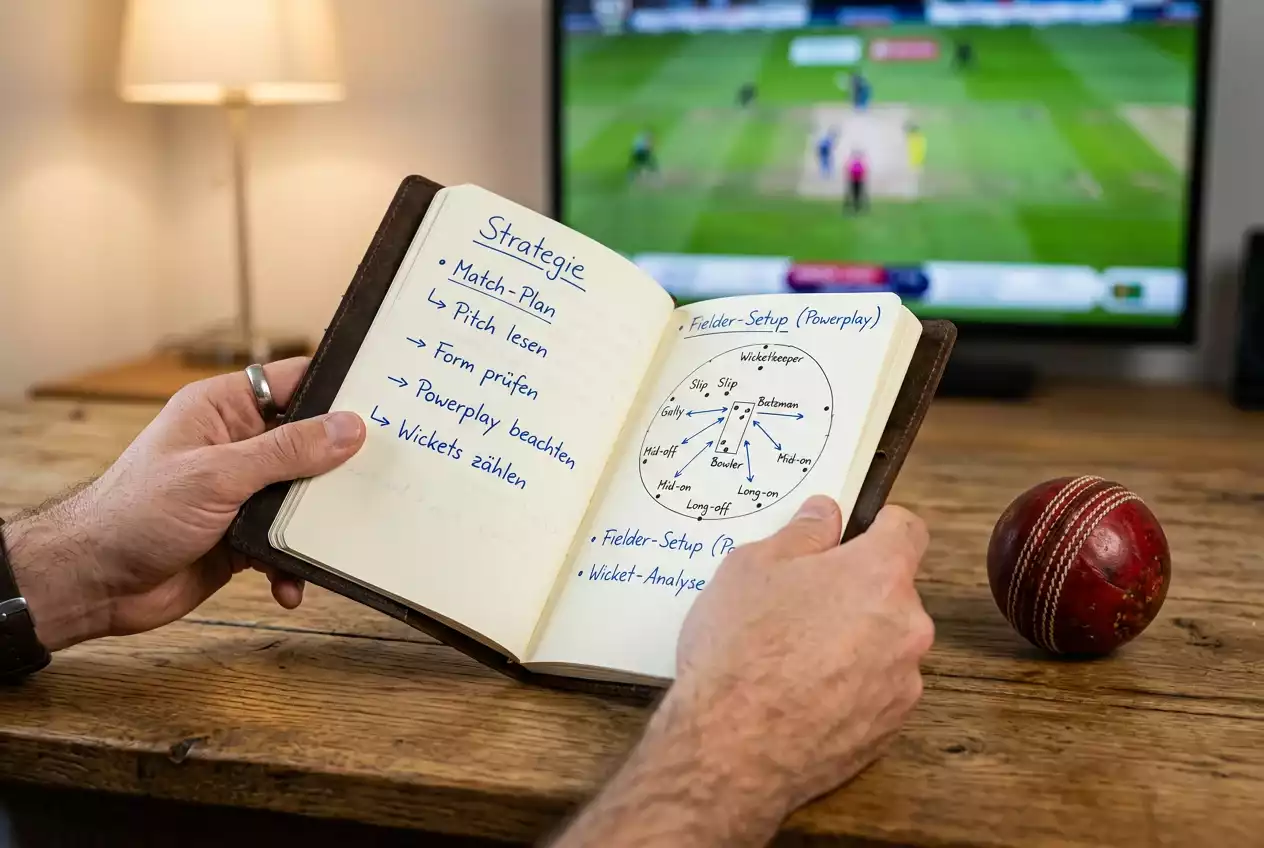 Strategie
• Match-Plan
↳ Pitch lesen
→ Form prüfen
→ Powerplay beachten
↳ Wickets zählen
• Fielder-Setup (Powerplay)
Wicketkeeper
Slip Slip
Gully Batsman
Mid-off Mid-on
Bowler
Mid-on Long-on
Long-off
• Fielder-Setup
• Wicket-Analyse